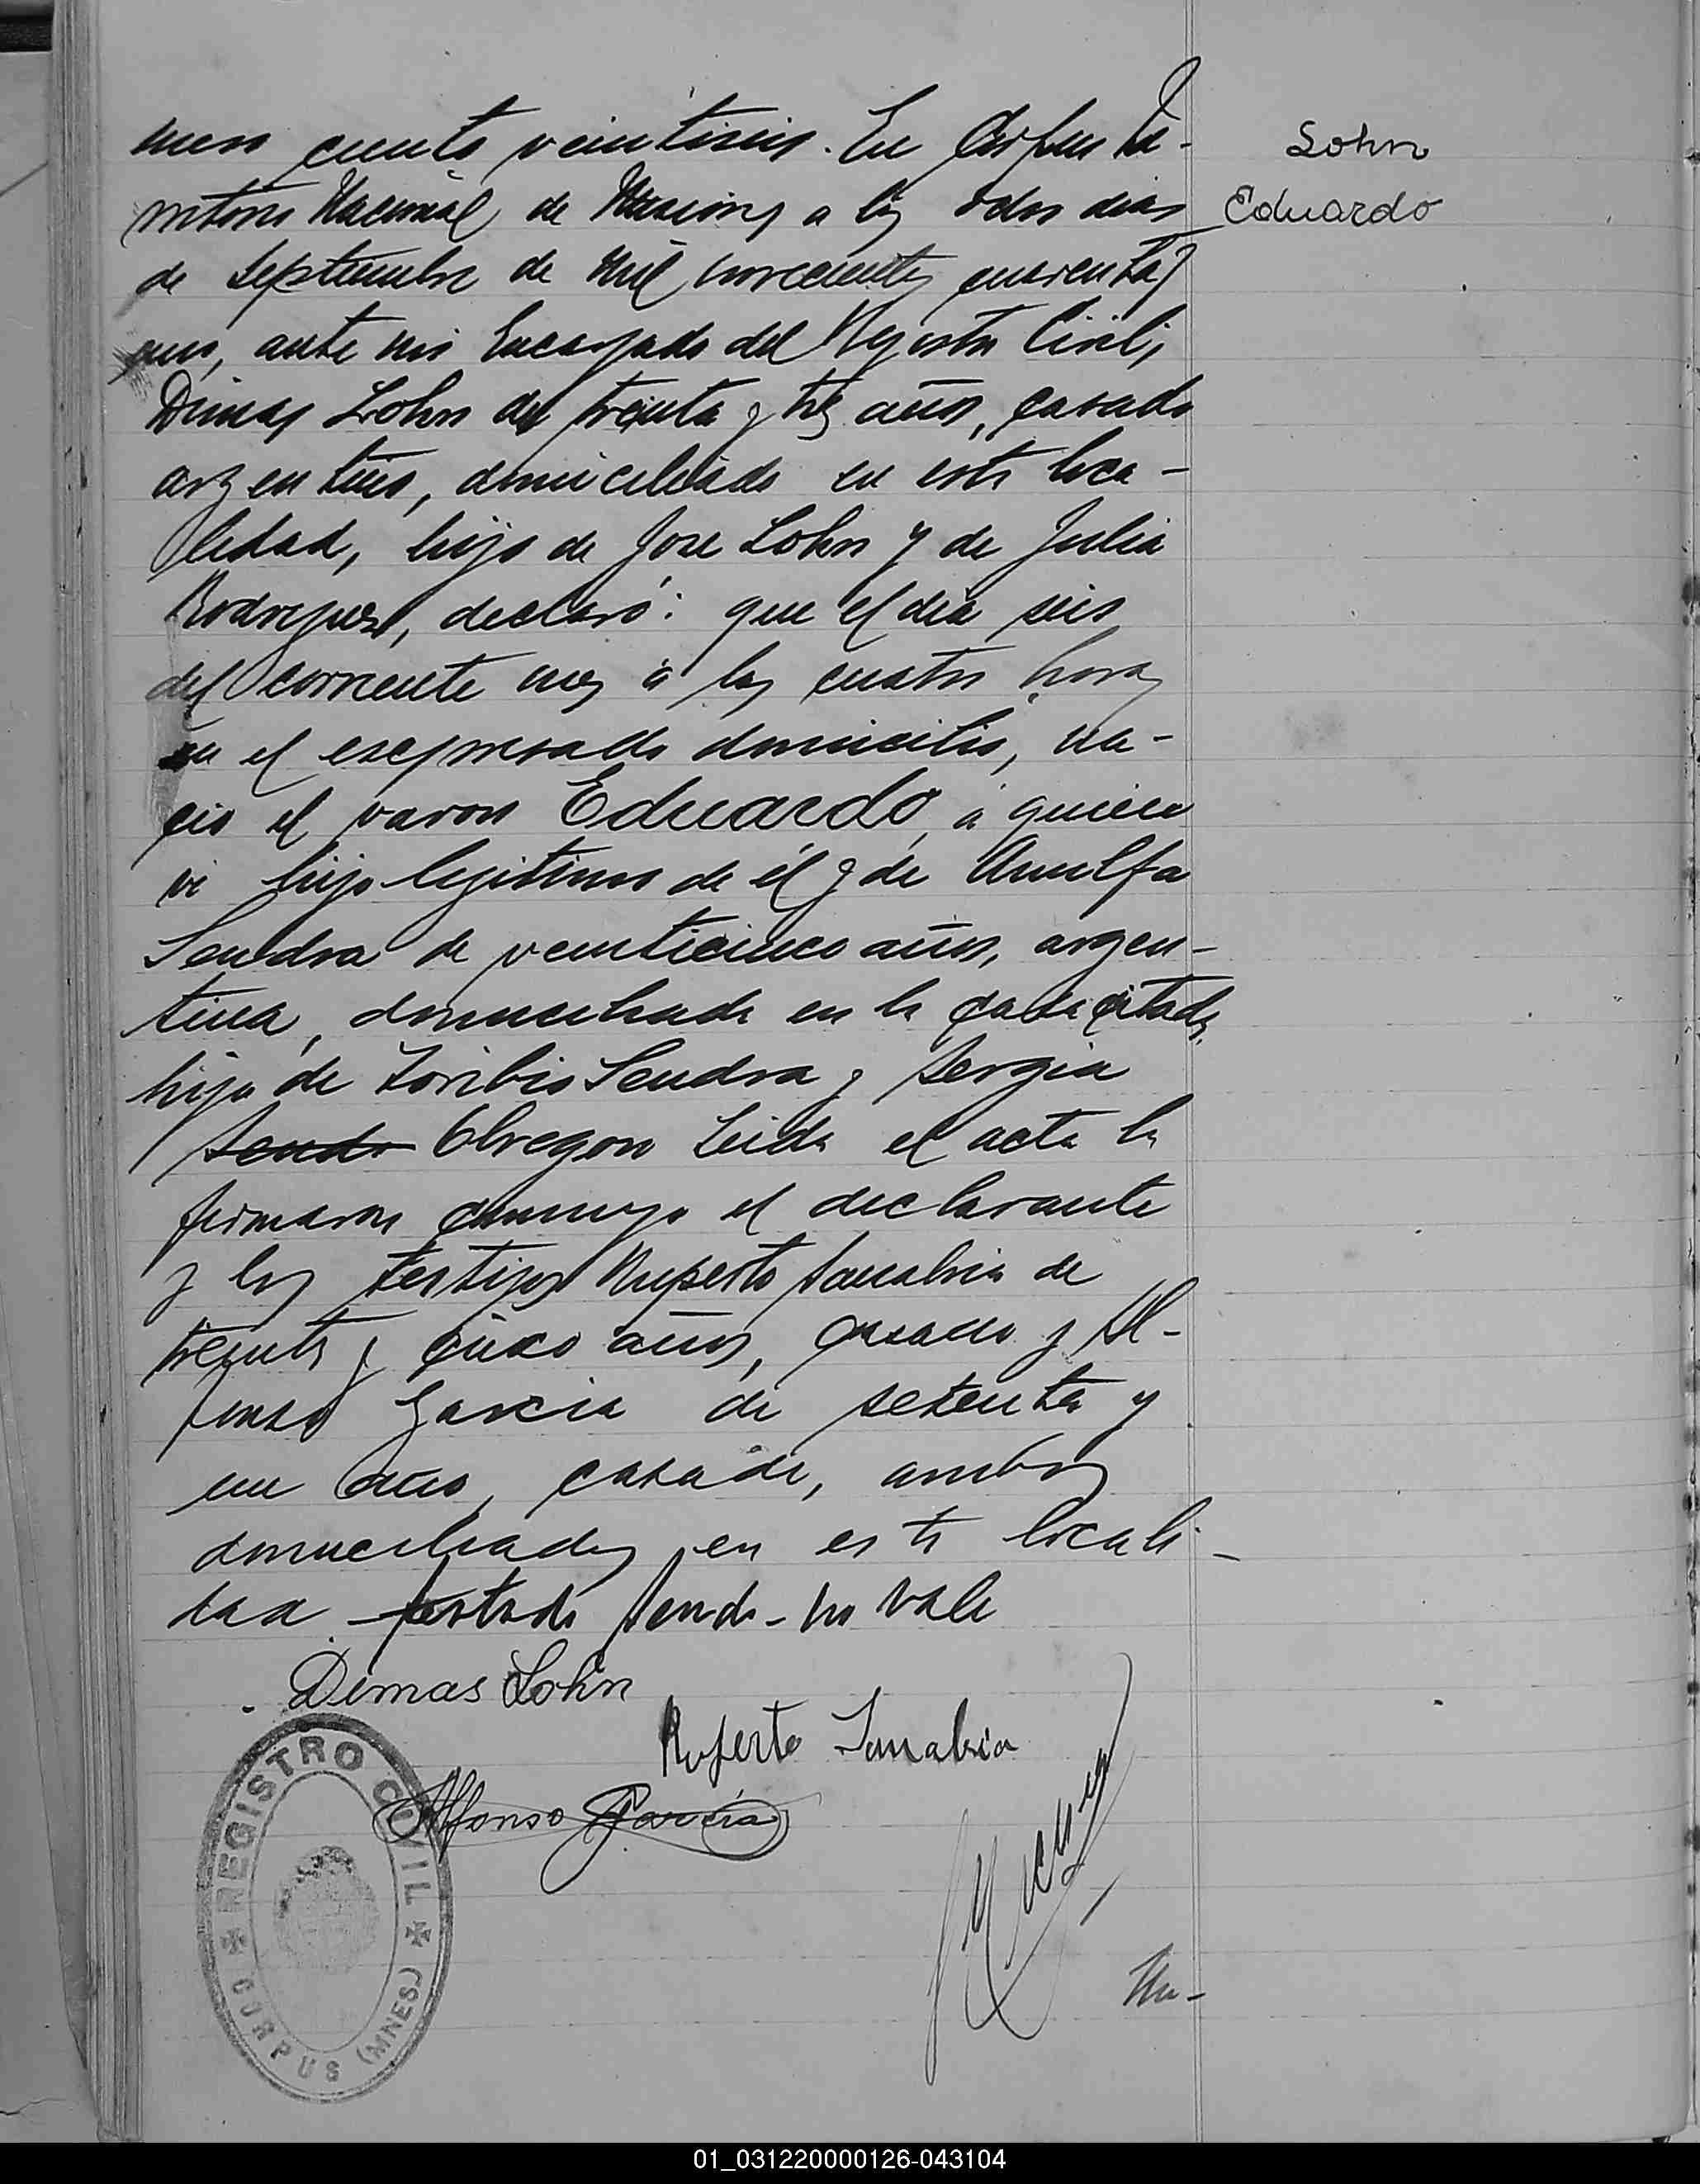 mero ciento veintiseis. En Corpus Te-
rritorio Nacional de Misiones a los dias
de Septiembre de mil novecientos cuarenta y
uno, ante mi Encargado del Registro Civil,
Dimas Lohn de treinta y tres años, casado
argentino, domiciliado en esta loca-
lidad, hijo de Jose Lohn y de Julia
Rodriguez, declaró: que el dia seis
del corriente mes á las cuatro horas
en el expresado domicilio, na-
cio el varon Eduardo, á quien
vi hijo legitimo de él y de Arnulfa
Sendra de veinticinco años, argen-
tina, domiciliada en la casa citada,
hija de Toribio Sendra y Sergia
Sendr Obregon Leida el acta la
firmaron conmigo el declarante
y los testigos Ruperto Sanabria de
treinta y cinco años, casado y Al-
fonso Garcia de setenta y
un años, casado, ambos
domiciliados en esta locali-
dad. testado Sendr- no vale
Dimas Lohn
Ruperto Sanabria
Alfonso Garcia
Nu-
Lohn
Eduardo
REGISTRO CIVIL
CORPUS (MNES.)
01_031220000126-043104